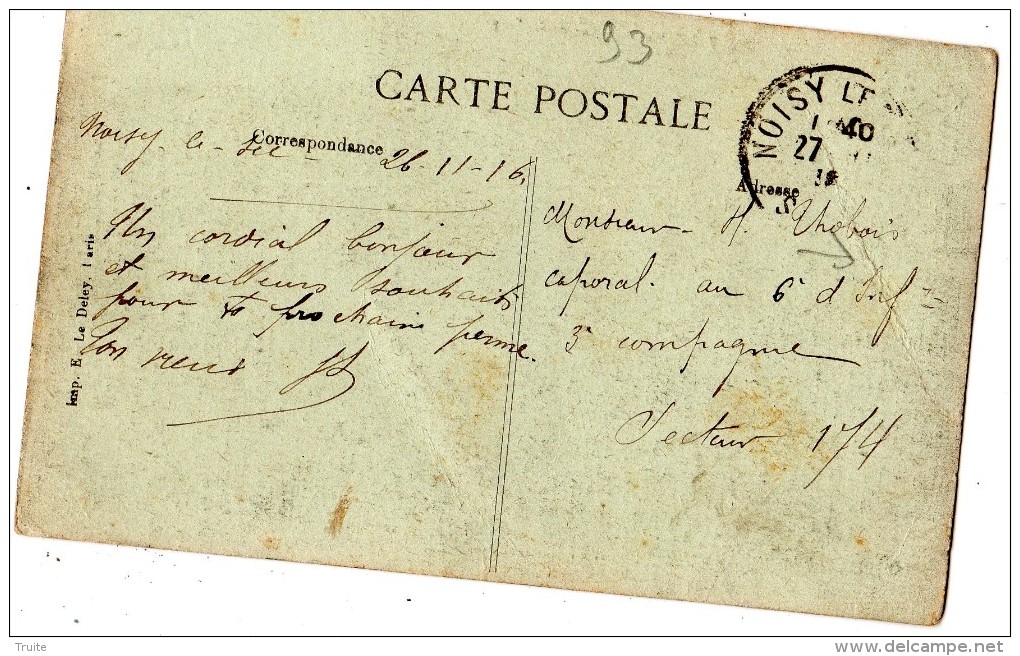 93
CARTE POSTALE
NOISY LE
1 40
27
Correspondance
Noisy-le-Sec 26-11-16.
Adresse
Un cordial bonjour
et meilleurs souhaits
pour prochaine perme.
Ton vieux
Monsieur H.
caporal au 6e d'Inf
3e compagnie
Secteur 174
Imp. E. Le Deley, Paris
Truite
www.delcampe.net